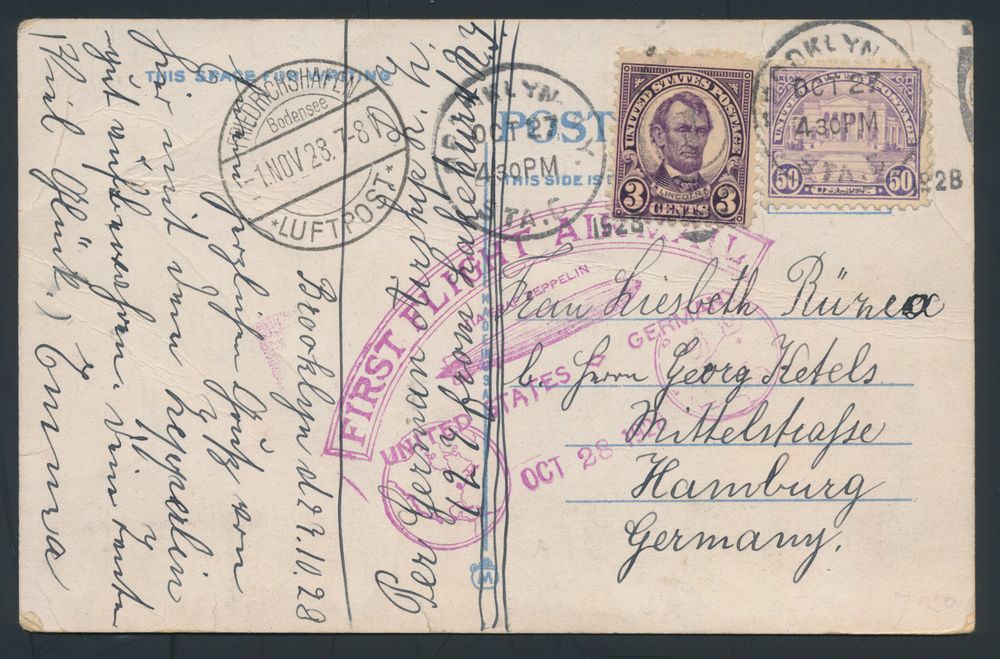 THIS SPACE FOR WRITING
POST
THIS SIDE IS
FRIEDRICHSHAFEN
Bodensee
1.NOV.28.7-8V.
LUFTPOST
BROOKLYN
OCT 27
4.30 PM
STA.
1928
UNITED STATES POSTAGE
LINCOLN
3 CENTS 3
BROOKLYN
OCT 27
4.30 PM
STA.
1928
50 50
FIRST FLIGHT AIR MAIL
GRAF ZEPPELIN
UNITED STATES GERMANY
OCT 28
Brooklyn d 27.10.28
herzlichen Gruß von
hier mit dem Zeppelin
Viel Glück, Emma
Per German Airship L.Z.
127 from Lakehurst N.Y.
Frau Liesbeth
b. Herrn Georg Ketels
Mittelstraße
Hamburg
Germany.